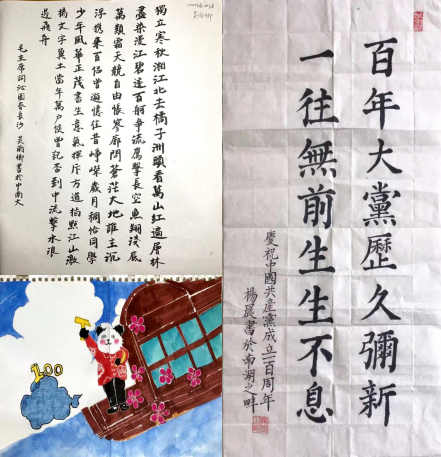 獨立寒秋湘江北去橘子洲頭看萬山紅遍層林
盡染漫江碧透百舸爭流鷹擊長空魚翔淺底
萬類霜天競自由悵寥廓問蒼茫大地誰主沉
浮携來百侶曾遊憶往昔崢嶸歲月稠恰同學
少年風華正茂書生意氣揮斥方遒指點江山激
揚文字糞土當年萬戶侯曾記否到中流擊水浪
遏飛舟
毛主席詞沁園春長沙 吴雨 書於中南大
100
百年大黨歷久彌新
一往無前生生不息
慶祝中國共産黨成立一百周年
楊晨書於南湖之畔